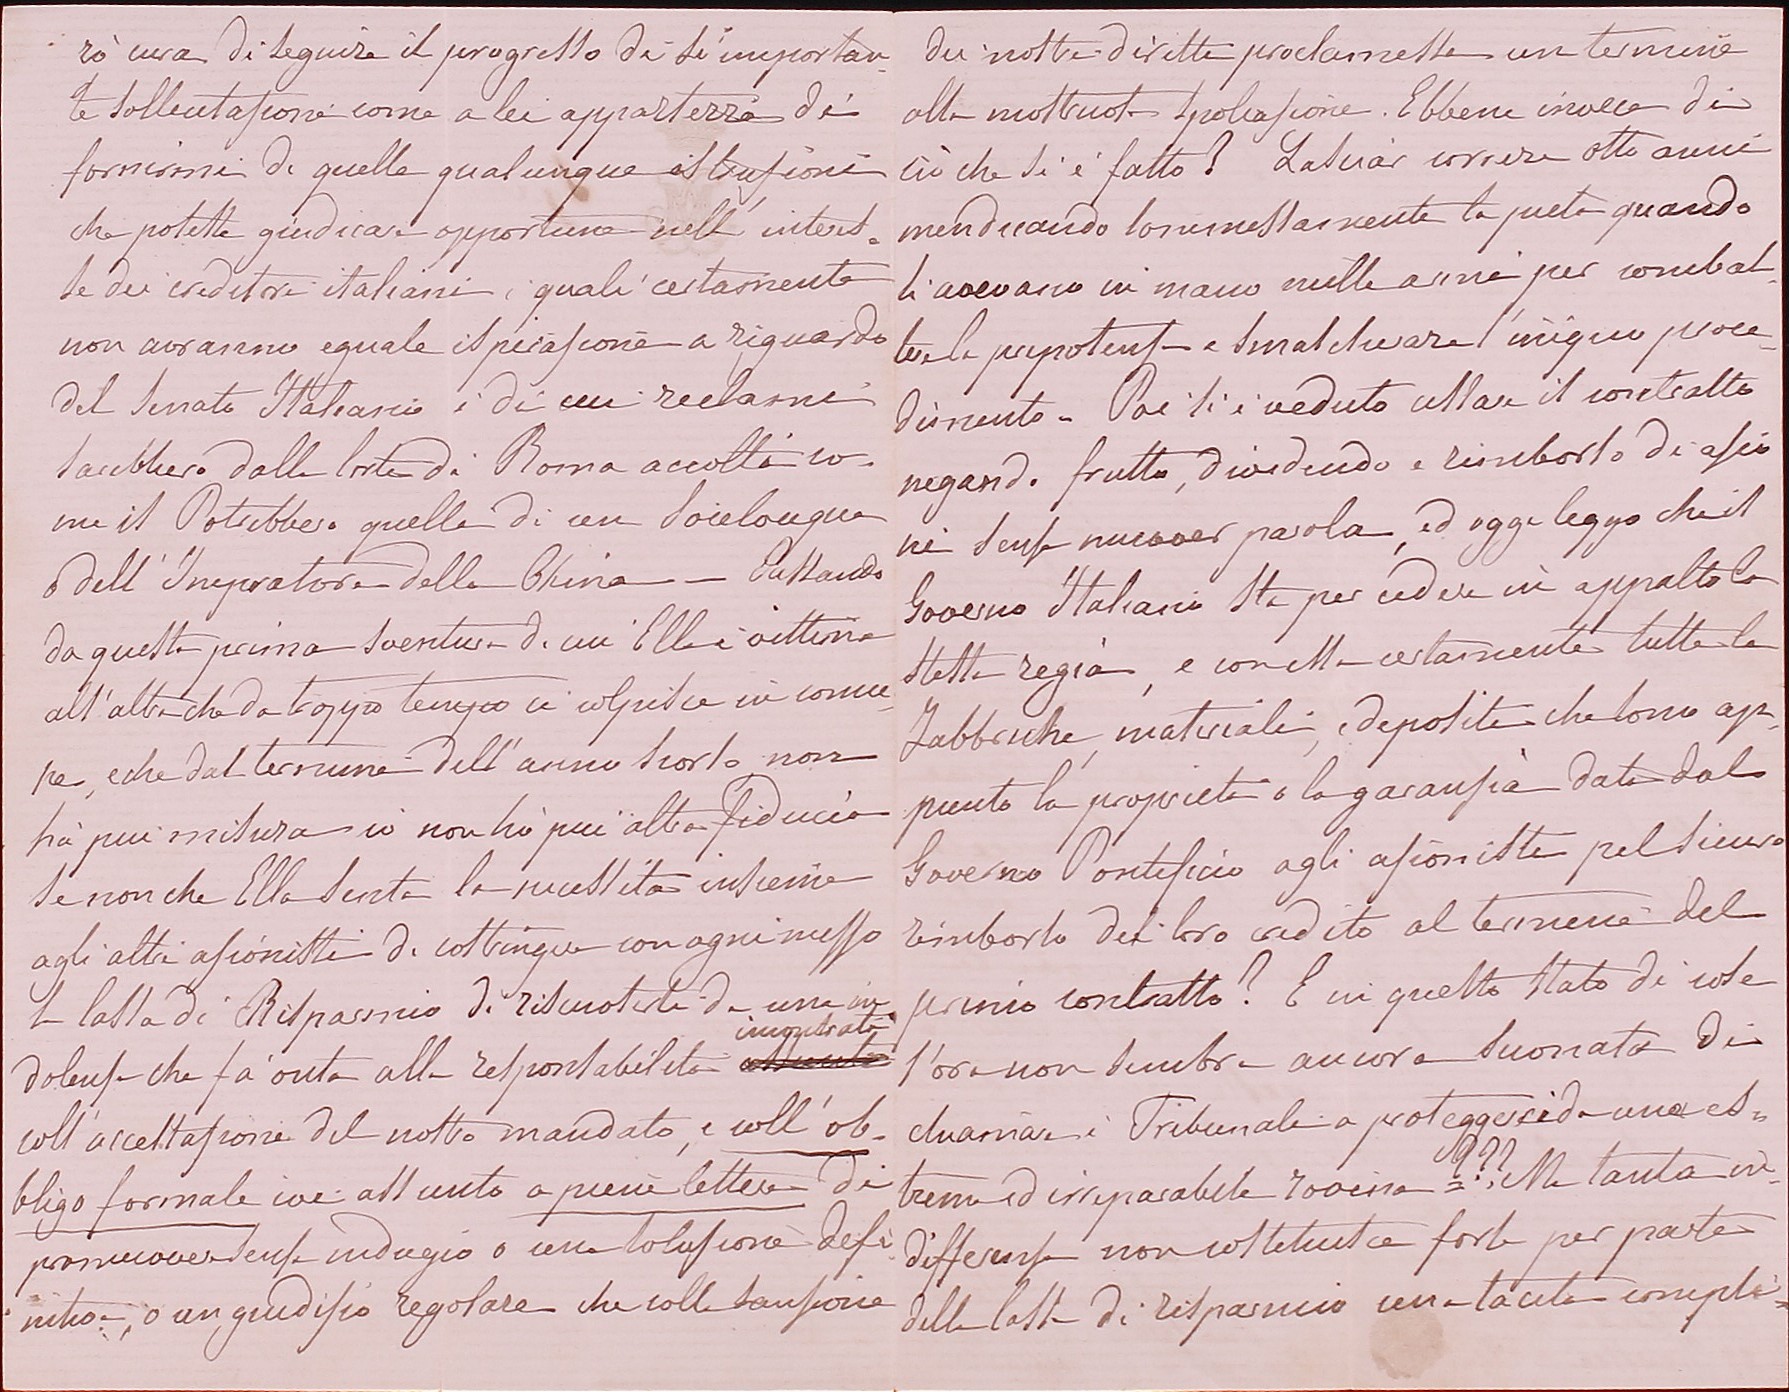 rò cura di seguire il progresso di sì importan-
te sollecitazione come a lei apparterrà di
fornirmi di quelle qualunque istruzioni
che potesse giudicare opportune nell' interes-
se dei creditori italiani, i quali certamente
non avranno eguale ispirazione a riguardo
del Senato Italiano i di cui reclami
sarebbero dalla Corte di Roma accolti co-
me il Potrebbero quelle di un
o dell' Imperatore della China — Passando
da questa prima sventura di cui Ella è vittima
all'altra che da troppo tempo ci colpisce in comu-
ne, e che dal termine dell' anno scorso non
ha più misura io non hò più altra fiducia
se non che Ella senta la necessità insieme
agli altri azionisti di costringere con ogni mezzo
la Cassa di Risparmio di riscuoterla da una in-
dolenza che fà onta alla responsabilità incontrata
coll'accettazione del nostro mandato, e coll' ob-
bligo formale ivi assunto a piene lettere di
promuovere senza indugio o una soluzione defi-
nitiva, o un giudizio regolare che colla sanzione
dei nostri diritti proclamasse un termine
alla mostruosa spoliazione. Ebbene invece di
ciò che si è fatto? Lasciar correre otto anni
mendicando sommessamente la pietà quando
si avevano in mano mille armi per combat-
tere la prepotenza e smascherare l'iniquo proce-
dimento - Poi si è veduto cessare il contratto
negando frutto, dividendo e rimborso di azio
ni senza muover parola, ed oggi leggo che il
Governo Italiano sta per cedere in appalto la
stessa regìa, e con essa certamente tutte le
Fabbriche, materiali, e depositi che sono ap-
punto la proprietà o la garanzia data dal
Governo Pontificio agli azionisti pel sicuro
rimborso del loro credito al termine del
primo contratto? E in questo stato di cose
l'ora non sembra ancora suonata di
chiamare i Tribunali a proteggerci da una es-
trema ed irreparabile rovina???. Ma tanta in-
differenza non costituisce forse per parte
della Cassa di risparmio una tacita compli-